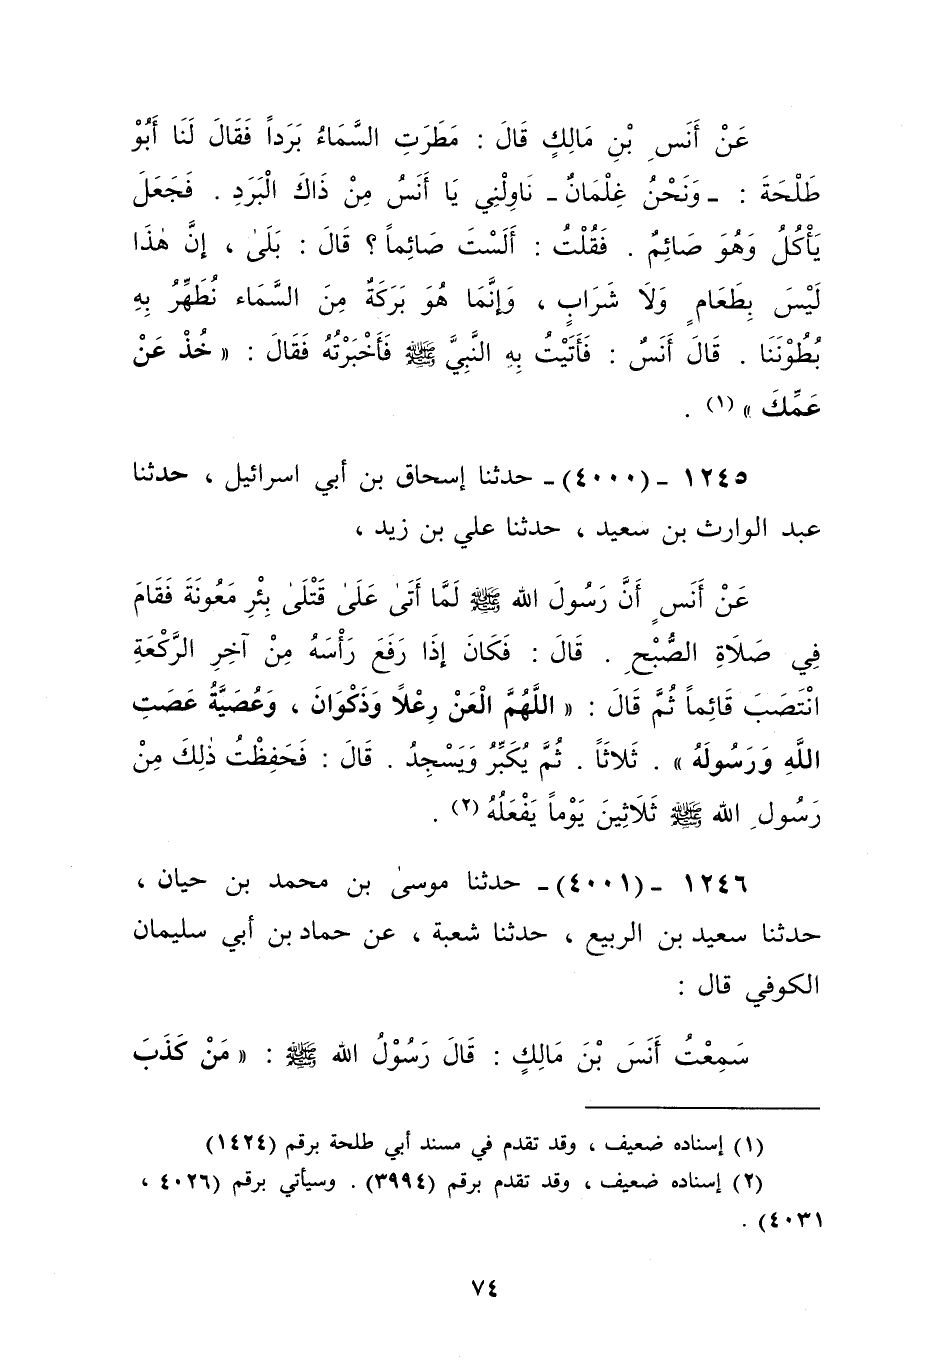 عَنْ أَنَسِ بْنِ مَالِكٍ قَالَ : مَطَرَتِ السَّمَاءُ بَرَداً فَقَالَ لَنَا أَبُوْ
طَلْحَةَ : ـ وَنَحْنُ غِلْمَانٌ ـ نَاوِلْنِي يَا أَنَسُ مِنْ ذَاكَ الْبَرَدِ . فَجَعَلَ
يَأْكُلُ وَهُوَ صَائِمٌ . فَقُلْتُ : أَلَسْتَ صَائِماً ؟ قَالَ : بَلَىٰ ، إِنَّ هٰذَا
لَيْسَ بِطَعَامٍ وَلَا شَرَابٍ ، وَإِنَّمَا هُوَ بَرَكَةٌ مِنَ السَّمَاء نُطَهِّرُ بِهِ
بُطُوْنَنَا . قَالَ أَنَسٌ : فَأَتَيْتُ بِهِ النَّبِيَّ ﷺ فَأَخْبَرْتُهُ فَقَالَ : « خُذْ عَنْ
عَمِّكَ » (١) .
١٢٤٥ ـ (٤٠٠٠) ـ حدثنا إسحاق بن أبي اسرائيل ، حدثنا
عبد الوارث بن سعيد ، حدثنا علي بن زيد ،
عَنْ أَنَسٍ أَنَّ رَسُولَ الله ﷺ لَمَّا أَتَىٰ عَلَىٰ قَتْلَىٰ بِئْرِ مَعُونَةَ فَقَامَ
فِي صَلَاةِ الصُّبْحِ . قَالَ : فَكَانَ إِذَا رَفَعَ رَأْسَهُ مِنْ آخِرِ الرَّكْعَةِ
انْتَصَبَ قَائِماً ثُمَّ قَالَ : « اللَّهُمَّ الْعَنْ رِعْلًا وَذَكْوَانَ ، وَعُصَيَّةُ عَصَتِ
اللَّهِ وَرَسُولَهُ » . ثَلاثَاً . ثُمَّ يُكَبِّرُ وَيَسْجِدُ . قَالَ : فَحَفِظْتُ ذٰلِكَ مِنْ
رَسُولِ الله ﷺ ثَلَاثِينَ يَوْماً يَفْعَلُهُ (٢) .
١٢٤٦ ـ (٤٠٠١) ـ حدثنا موسىٰ بن محمد بن حيان ،
حدثنا سعيد بن الربيع ، حدثنا شعبة ، عن حماد بن أبي سليمان
الكوفي قال :
سَمِعْتُ أَنَسَ بْنَ مَالِكٍ : قَالَ رَسُوْلُ الله ﷺ : « مَنْ كَذَبَ
(١) إسناده ضعيف ، وقد تقدم في مسند أبي طلحة برقم (١٤٢٤)
(٢) إسناده ضعيف ، وقد تقدم برقم (٣٩٩٤) . وسيأتي برقم (٤٠٢٦ ،
٤٠٣١) .
٧٤